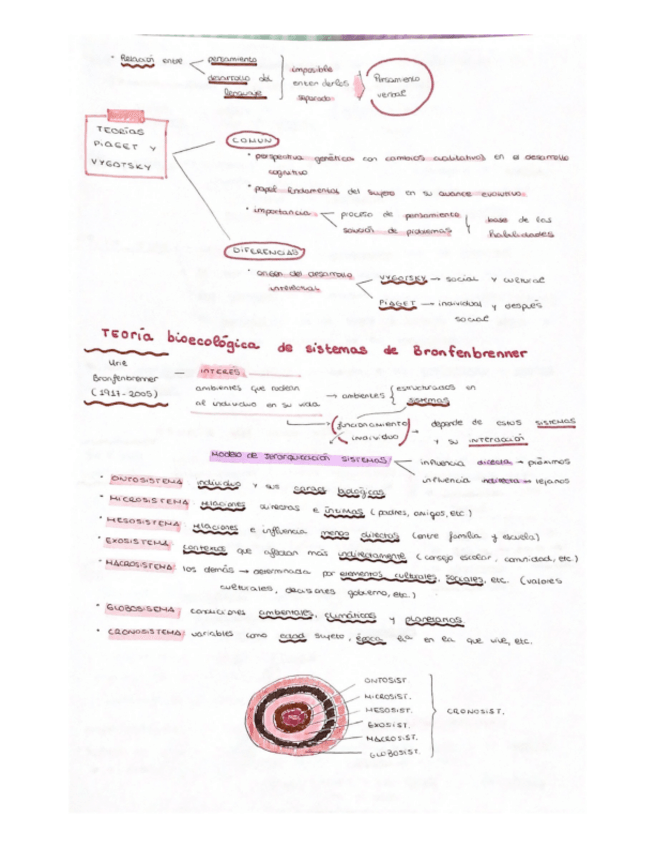 · Relación entre pensamiento
desarrollo del
lenguaje
imposible
entenderlos
separado
Pensamiento
verbal
TEORÍAS
PIAGET Y
VYGOTSKY
COMÚN
· perspectiva genética con cambios cualitativos en el desarrollo
cognitivo
· papel fundamental del sujeto en su avance evolutivo
· importancia proceso de pensamiento
solución de problemas
base de las
habilidades
DIFERENCIAS
· origen del desarrollo
intelectual
VYGOTSKY → social y cultural
PIAGET → individual y después
social
TEORÍA bioecológica de sistemas de Bronfenbrenner
Urie
Bronfenbrenner
(1917-2005)
— INTERÉS
ambientes que rodean
al individuo en su vida
→ ambientes { estructurados en
sistemas
funcionamiento
individuo
→ depende de estos SISTEMAS
y su INTERACCIÓN
MODELO DE JERARQUIZACIÓN SISTEMAS
influencia directa → próximos
influencia indirecta → lejanos
· ONTOSISTEMA: individuo y sus caract. biológicas
· MICROSISTEMA: relaciones directas e íntimas (padres, amigos, etc.)
· MESOSISTEMA: relaciones e influencia menos directas (entre familia y escuela)
· EXOSISTEMA: contextos que afectan más indirectamente (consejo escolar, comunidad, etc.)
· MACROSISTEMA: los demás → determinada por elementos culturales, sociales, etc. (valores
culturales, decisiones gobierno, etc.)
· GLOBOSISEMA: condiciones ambientales, climáticas y planetarias
· CRONOSISTEMA: variables como edad sujeto, época en la que vive, etc.
ONTOSIST
MICROSIST.
MESOSIST.
EXOSIST.
MACROSIST.
GLOBOSIST.
CRONOSIST.